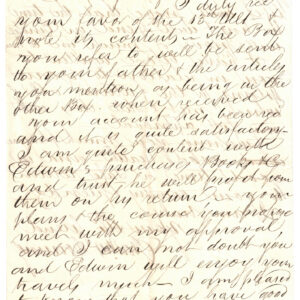 I duly rec
your favo of the 13th Ult &
note its contents - The Box
you refer to will be sent
to your father & the articles
you mention as being in the
other Box when received
your account has been re
and it is quite satisfactory -
I am quite content with
Edwin's purchases Books &c
and trust he will profit from
them on his return - your
plans & the course you propose
meet with my approval,
and I can not doubt you
and Edwin will enjoy your
travels much - I am pleased
to know that you have good